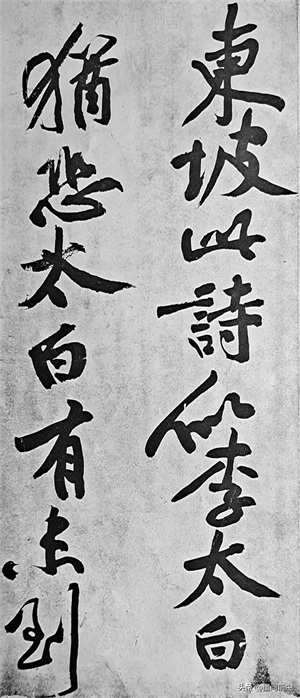 東坡此詩似李太白
猶恐太白有未到
头条